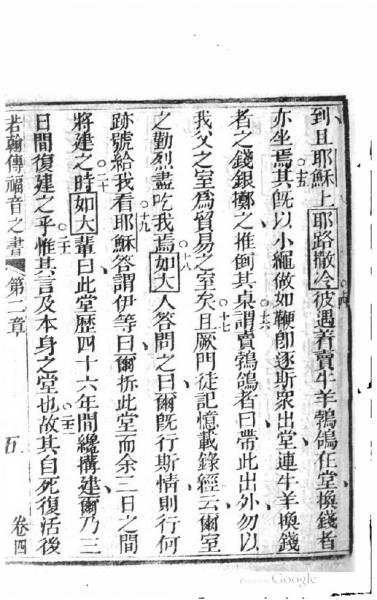 到且耶穌上耶路撒冷彼遇着賣牛羊鵓鴿在堂換錢者
十四
亦坐焉其既以小繩做如鞭卽逐斯衆出堂連牛羊換錢
十五
者之錢銀擲之推倒其桌謂賣鵓鴿者曰帶此出外勿以
十六
我父之室爲貿易之室矣且厥門徒記憶載錄經云爾室
十七
之勤烈盡吃我焉如大人答問之曰爾既行斯情則行何
十八
跡號給我看耶穌答謂伊等曰爾拆此堂而余三日之間
十九
將建之時如大輩曰此堂歷四十六年間纔搆建爾乃三
二十
日間復建之乎惟其言及本身之堂也故其自死復活後
二一
二二
若翰傳福音之書 第二章 五 卷四
Google